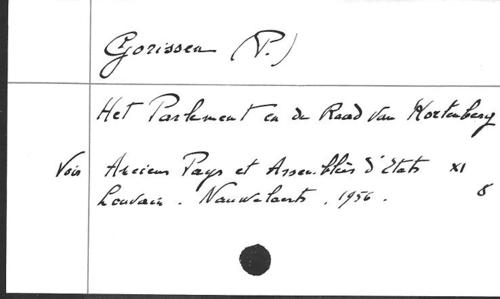 Gorissen (P.)
Het Parlement en de Raad van Kortenberg
Voir Anciens Pays et Assemblées d'Etats XI
Louvain. Nauwelaerts, 1956. 8